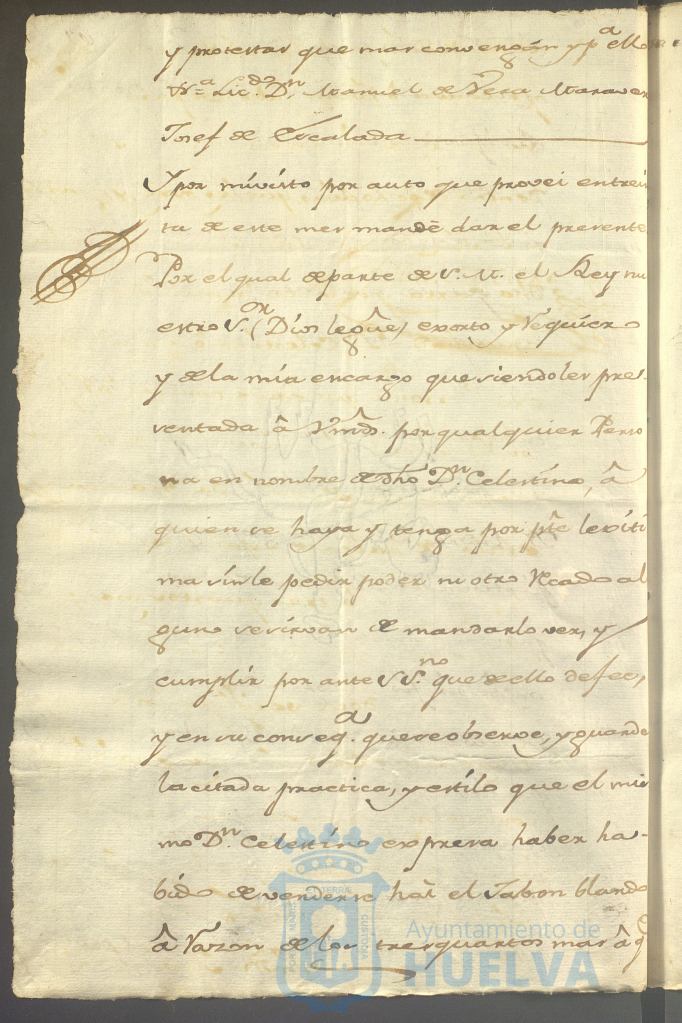 y protestar que mas convengan y p.ª ello
Lic.do D.n Manuel de Vera Maraver
Josef de Escalada
Y por mi visto por auto que provei en trein
ta de este mes mandè dar el presente
Por el qual de parte de S. M. el Rey nu
estro S.or (Dios le gûe) exorto y requiero
y de la mia encargo que siendoles pre-
sentada â Vmds. por qualquier Perso
na en nombre de dho D.n Celestino, â
quien se haya y tenga por pte lexiti
ma sin le pedir poder ni otro recado al
guno se sirvan de mandarlo ver, y
cumplir por ante S.no que de ello de fee,
y en su conseq.a que se observe, y guarde
la citada practica, y estilo que el mis
mo D.n Celestino expresa haber ha-
bido de venderse el Jabon blando
â razon de los tres quartos mas â q.e
Ayuntamiento de
HUELVA